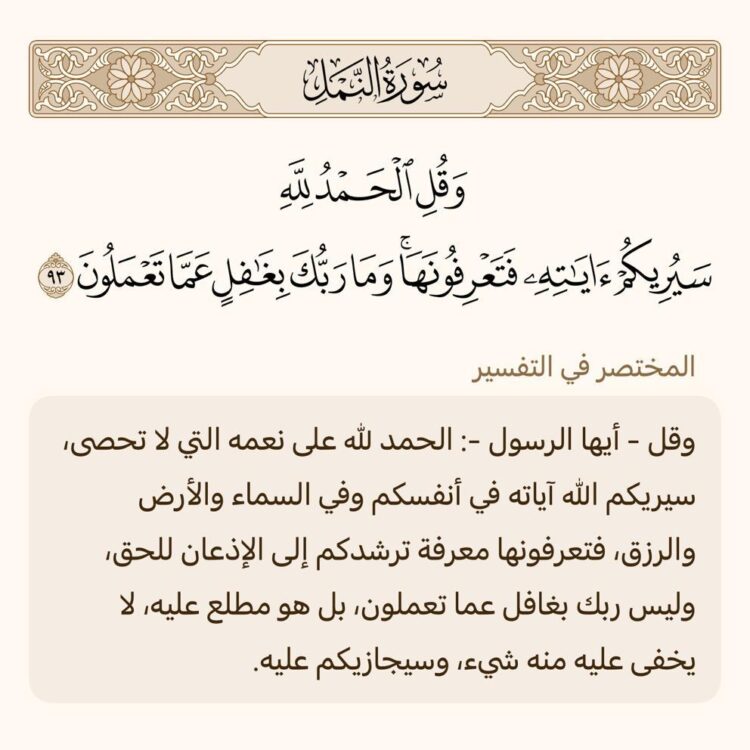 سُورَةُ النَّمْلِ
وَقُلِ ٱلْحَمْدُ لِلَّهِ
سَيُرِيكُمْ ءَايَـٰتِهِۦ فَتَعْرِفُونَهَا ۚ وَمَا رَبُّكَ بِغَـٰفِلٍ عَمَّا تَعْمَلُونَ ٩٣
المختصر في التفسير
وقل - أيها الرسول -: الحمد لله على نعمه التي لا تحصى،
سيريكم الله آياته في أنفسكم وفي السماء والأرض
والرزق، فتعرفونها معرفة ترشدكم إلى الإذعان للحق،
وليس ربك بغافل عما تعملون، بل هو مطلع عليه، لا
يخفى عليه منه شيء، وسيجازيكم عليه.